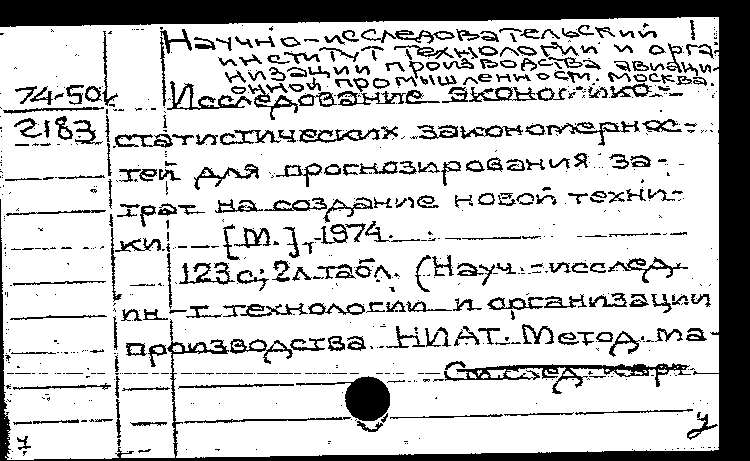 Научно-исследовательский
институт технологии и орга-
низации производства авиаци-
онной промышленност. Москва.
74-50к Исследование экономико-
2183 статистических закономернос-
тей для прогнозирования за-
трат на создание новой техни-
ки [М.], 1974.
123 с; 2л табл. (Науч.-исслед.
ин-т технологии и организации
производства НИАТ. Метод. ма-
См след. карт.
у